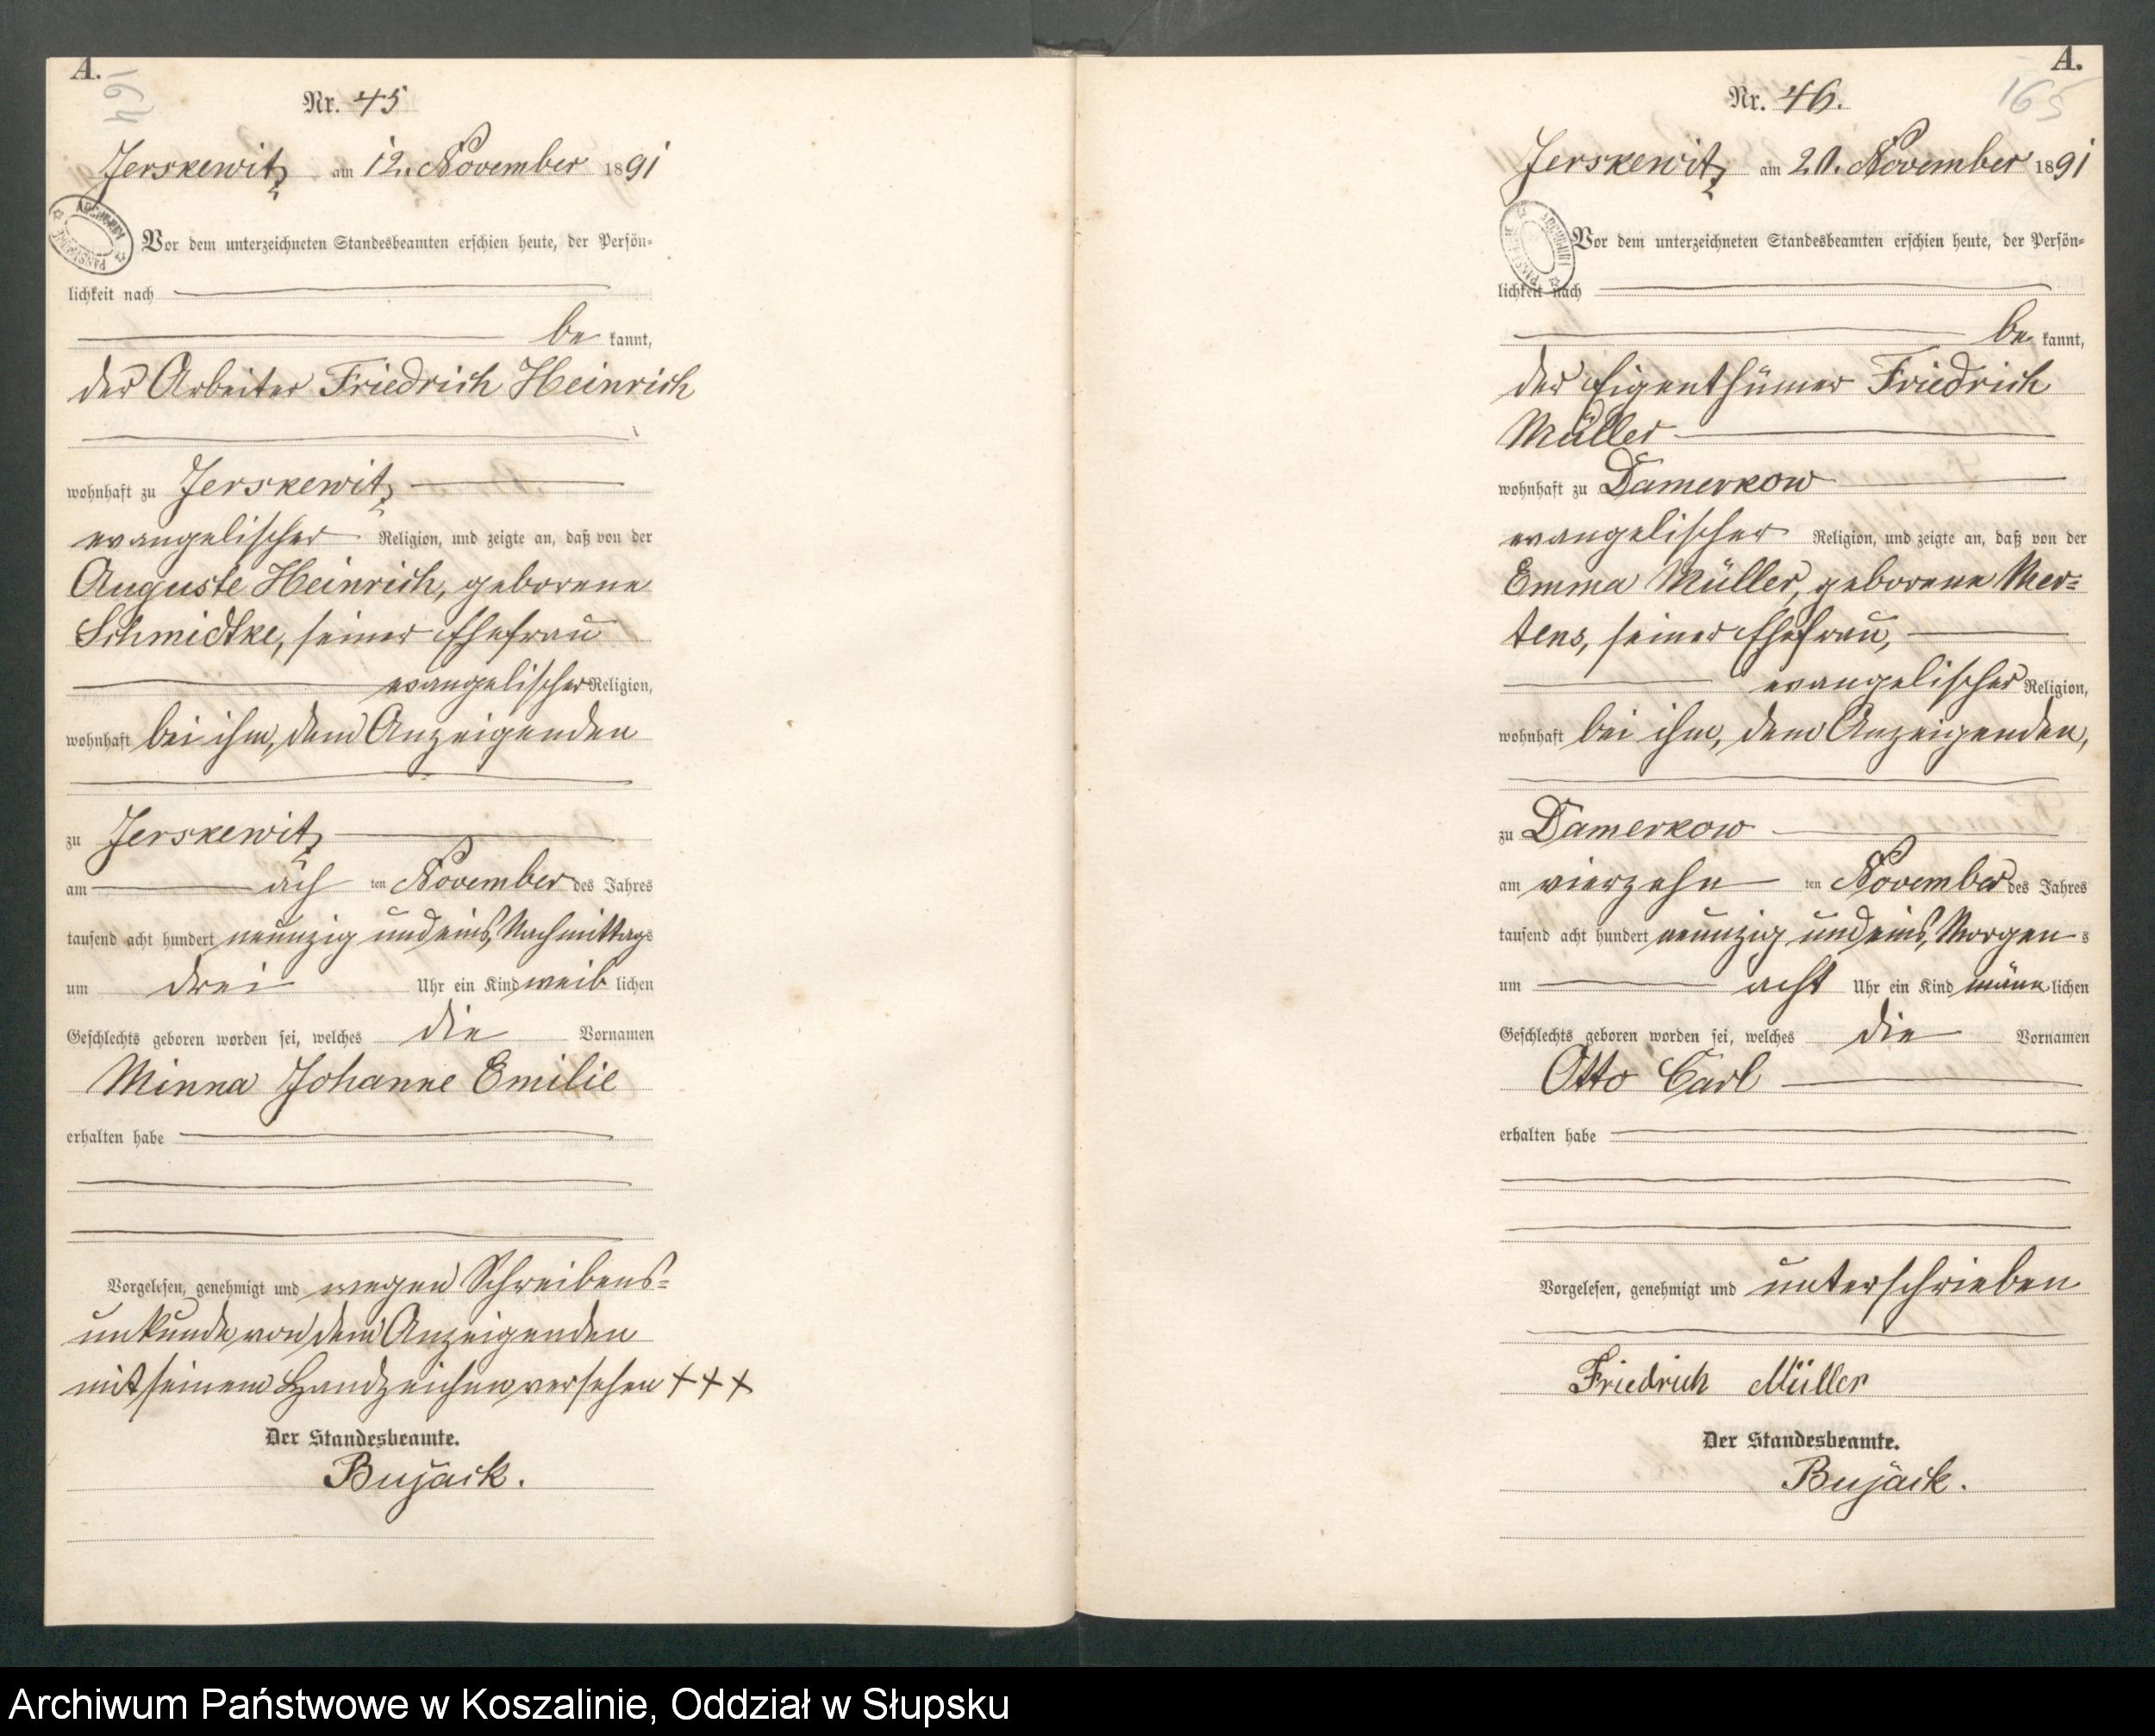 A.
164
Nr. 45
Jerskewitz am 12. November 1891
Vor dem unterzeichneten Standesbeamten erschien heute, der Persön-
lichkeit nach
be kannt,
der Arbeiter Friedrich Heinrich
wohnhaft zu Jerskewitz
evangelischer Religion, und zeigte an, daß von der
Auguste Heinrich, geborene
Schmidtke, seiner Ehefrau
evangelischer Religion,
wohnhaft bei ihm, dem Anzeigenden
zu Jerskewitz
am ach ten November des Jahres
tausend acht hundert neunzig und eins, Nachmittags
um drei Uhr ein Kind weib lichen
Geschlechts geboren worden sei, welches die Vornamen
Minna Johanne Emilie
erhalten habe
Vorgelesen, genehmigt und wegen Schreibens-
unkunde von dem Anzeigenden
mit seinem Handzeichen versehen +++
Der Standesbeamte.
Bujack.
A.
165
Nr. 46.
Jerskewitz am November 1891
Vor dem unterzeichneten Standesbeamten erschien heute, der Persön-
lichkeit nach
be kannt,
der Eigenthümer Friedrich
Müller
wohnhaft zu Damerkow
evangelischer Religion, und zeigte an, daß von der
Emma Müller, geborene Mer-
tens, seiner Ehefrau,
evangelischer Religion,
wohnhaft bei ihm, dem Anzeigenden,
zu Damerkow
am vierzehn ten November des Jahres
tausend acht hundert neunzig und eins, Morgen s
um acht Uhr ein Kind männ lichen
Geschlechts geboren worden sei, welches die Vornamen
Otto Carl
erhalten habe
Vorgelesen, genehmigt und unterschrieben
Friedrich Müller
Der Standesbeamte.
Bujack.
Archiwum Państwowe w Koszalinie, Oddział w Słupsku